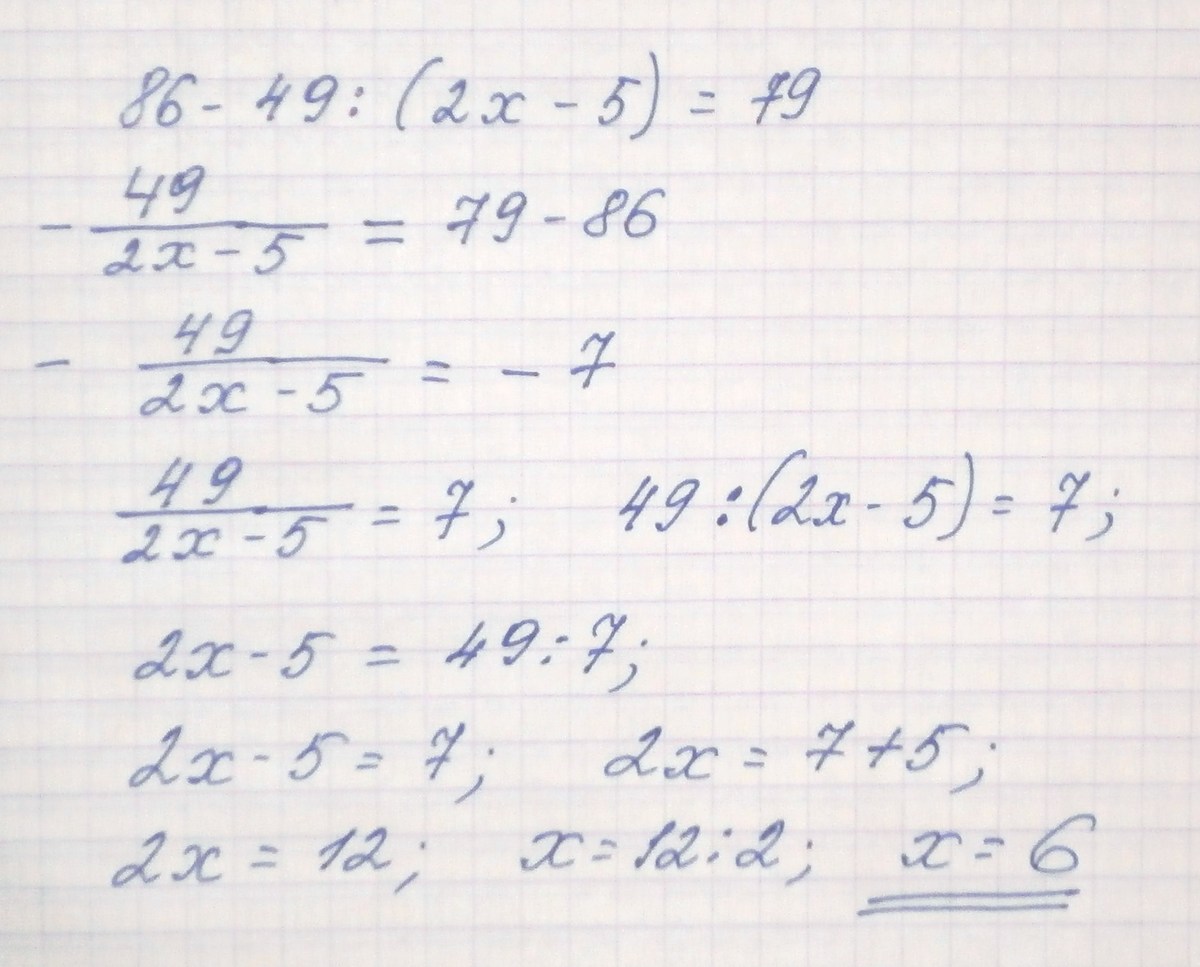 86 - 49 : (2x - 5) = 79
- 49/(2x - 5) = 79 - 86
- 49/(2x - 5) = - 7
49/(2x - 5) = 7; 49 : (2x - 5) = 7;
2x - 5 = 49 : 7;
2x - 5 = 7; 2x = 7 + 5;
2x = 12; x = 12 : 2; x = 6